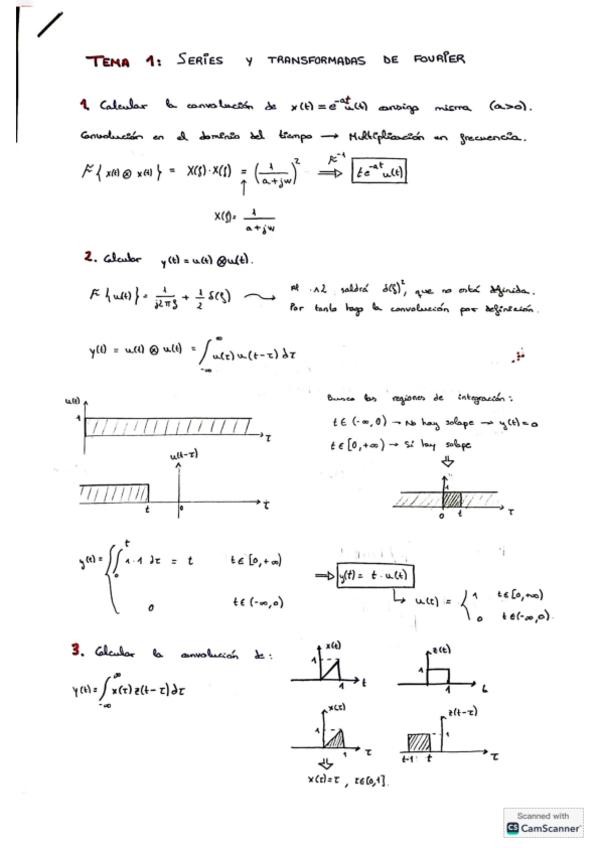 TEMA 1: SERIES Y TRANSFORMADAS DE FOURIER
1. Calcular la convolución de x(t) = e^-at u(t) consigo misma (a>0).
Convolución en el dominio del tiempo → Multiplicación en frecuencia.
F{x(t) ⊗ x(t)} = X(f)·X(f) = (1/(a+jw))^2 ⇒ F^-1 te^-at u(t)
X(f) = 1/(a+jw)
2. Calcular y(t) = u(t) ⊗ u(t).
F{u(t)} = 1/(j2πf) + 1/2 δ(f) → saldrá δ(f)^2, que no está definida.
Por tanto hago la convolución por definición.
y(t) = u(t) ⊗ u(t) = ∫_-∞^∞ u(τ) u(t-τ) dτ
Busco las regiones de integración:
u(t)
1
τ
t ∈ (-∞, 0) → No hay solape → y(t) = 0
t ∈ [0, +∞) → Sí hay solape
u(t-τ)
t
0
τ
1
0
t
τ
y(t) = { ∫_0^t 1·1 dτ = t t ∈ [0, +∞)
0 t ∈ (-∞, 0)
⇒ y(t) = t · u(t)
↳ u(t) = { 1 t ∈ [0, +∞)
0 t ∈ (-∞, 0).
3. Calcular la convolución de:
x(t)
1
1
t
z(t)
1
1
t
y(t) = ∫_-∞^∞ x(τ) z(t-τ) dτ
x(τ)
1
1
τ
z(t-τ)
1
t-1
t
τ
x(τ) = τ, τ ∈ [0,1].
Scanned with
CS CamScanner